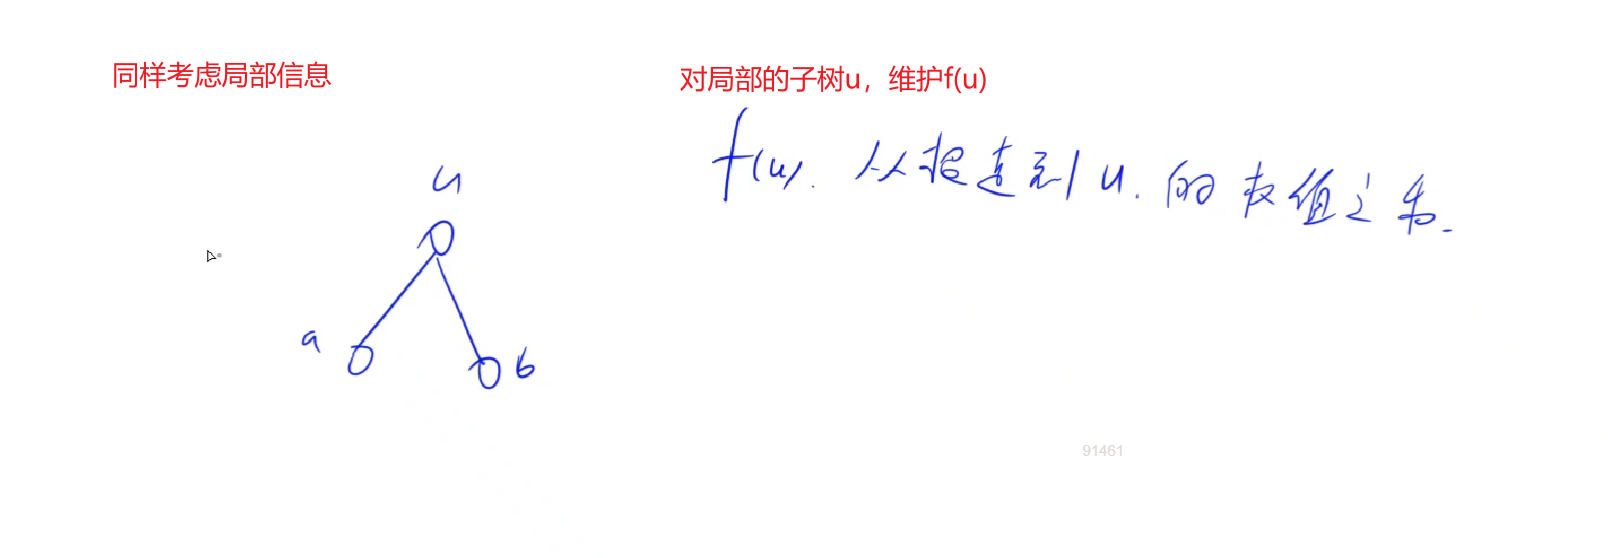 同样考虑局部信息
对局部的子树u，维护f(u)
f(u). 从根走到u.的权值之和.
u
a
b
91461